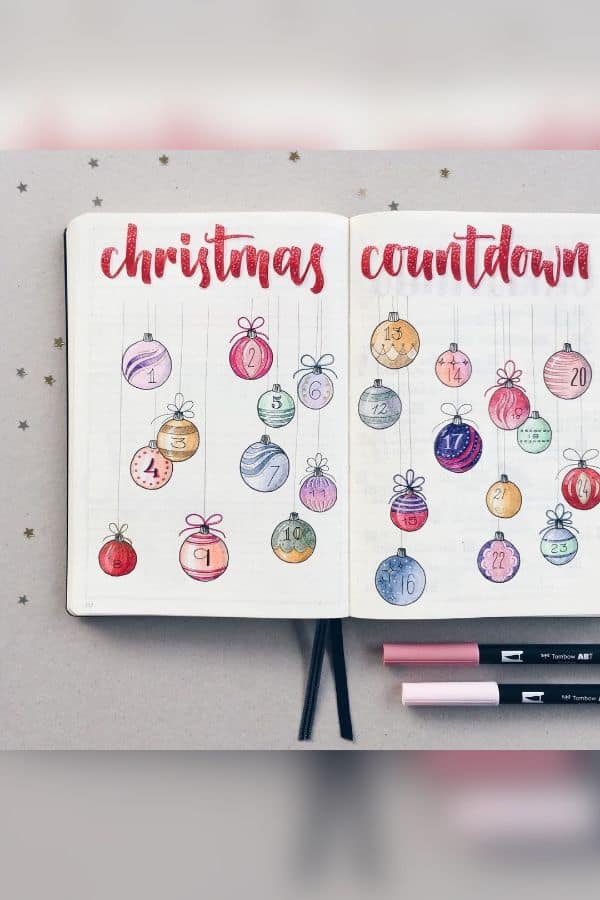 christmas countdown
1
2
3
4
5
6
7
8
9
10
11
12
13
14
15
16
17
18
19
20
21
22
23
24
Tombow AB
Tombow